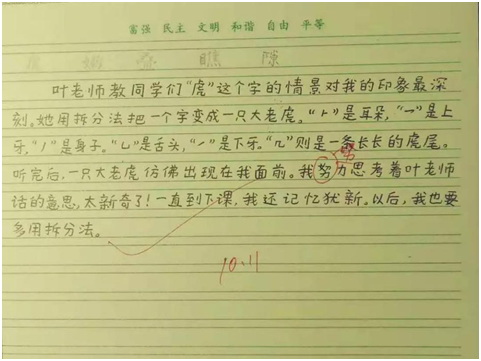 富强 民主 文明 和谐 自由 平等
瞧 隙
叶老师教同学们“虎”这个字的情景对我的印象最深
刻。她用拆分法把一个字变成一只大老虎。“⺊”是耳朵，“乛”是上
牙，“丿”是身子。“乚”是舌头，“㇀”是下牙。“几”则是一条长长的虎尾。
听完后，一只大老虎仿佛出现在我面前。我努力思考着叶老师
话的意思，太新奇了！一直到下课，我还记忆犹新。以后，我也要
多用拆分法。
10.11